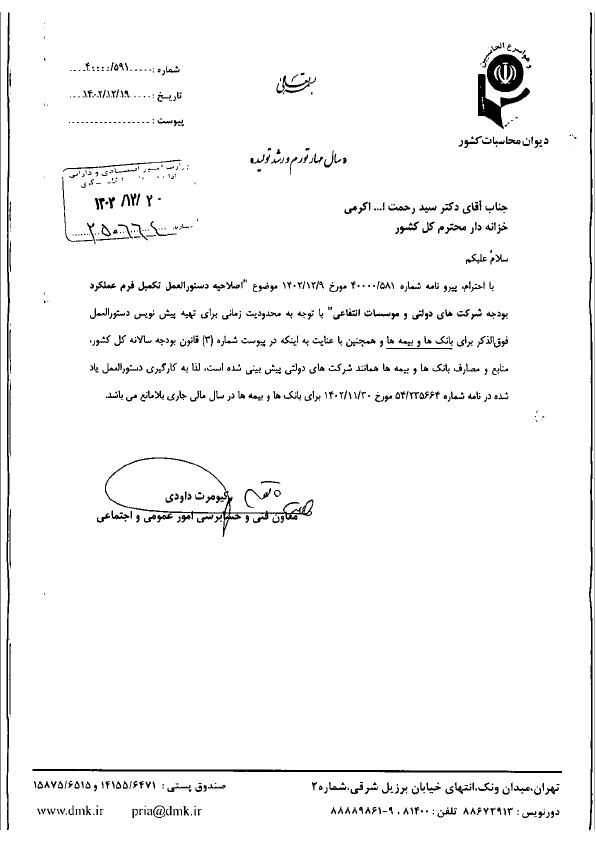 وهو اسرع الحاسبین
دیوان محاسبات کشور
بسمه تعالی
شماره : ۴۰۰۰۰/۵۹۱
تاریخ : ۱۴۰۲/۱۲/۱۹
پیوست :
«سال مهار تورم و رشد تولید»
وزارت امور اقتصادی و دارایی
۱۴۰۲/۱۲/۲۰
جناب آقای دکتر سید رحمت ا... اکرمی
خزانه دار محترم کل کشور
سلام علیکم
با احترام، پیرو نامه شماره ۴۰۰۰۰/۵۸۱ مورخ ۱۴۰۲/۱۲/۹ موضوع "اصلاحیه دستورالعمل تکمیل فرم عملکرد
بودجه شرکت های دولتی و موسسات انتفاعی" با توجه به محدودیت زمانی برای تهیه پیش نویس دستورالعمل
فوق‌الذکر برای بانک ها و بیمه ها و همچنین با عنایت به اینکه در پیوست شماره (۳) قانون بودجه سالانه کل کشور،
منابع و مصارف بانک ها و بیمه ها همانند شرکت های دولتی پیش بینی شده است، لذا به کارگیری دستورالعمل یاد
شده در نامه شماره ۵۴/۲۳۵۶۶۴ مورخ ۱۴۰۲/۱۱/۳۰ برای بانک ها و بیمه ها در سال مالی جاری بلامانع می باشد.
کیومرث داودی
معاون فنی و حسابرسی امور عمومی و اجتماعی
تهران،میدان ونک،انتهای خیابان برزیل شرقی،شماره۲
صندوق پستی : ۱۴۱۵۵/۶۴۷۱ و ۱۵۸۷۵/۶۵۱۵
دورنویس : ۸۸۶۷۳۹۱۳ تلفن : ۸۱۴۰۰ ، ۹-۸۸۸۸۹۸۶۱
pria@dmk.ir
www.dmk.ir